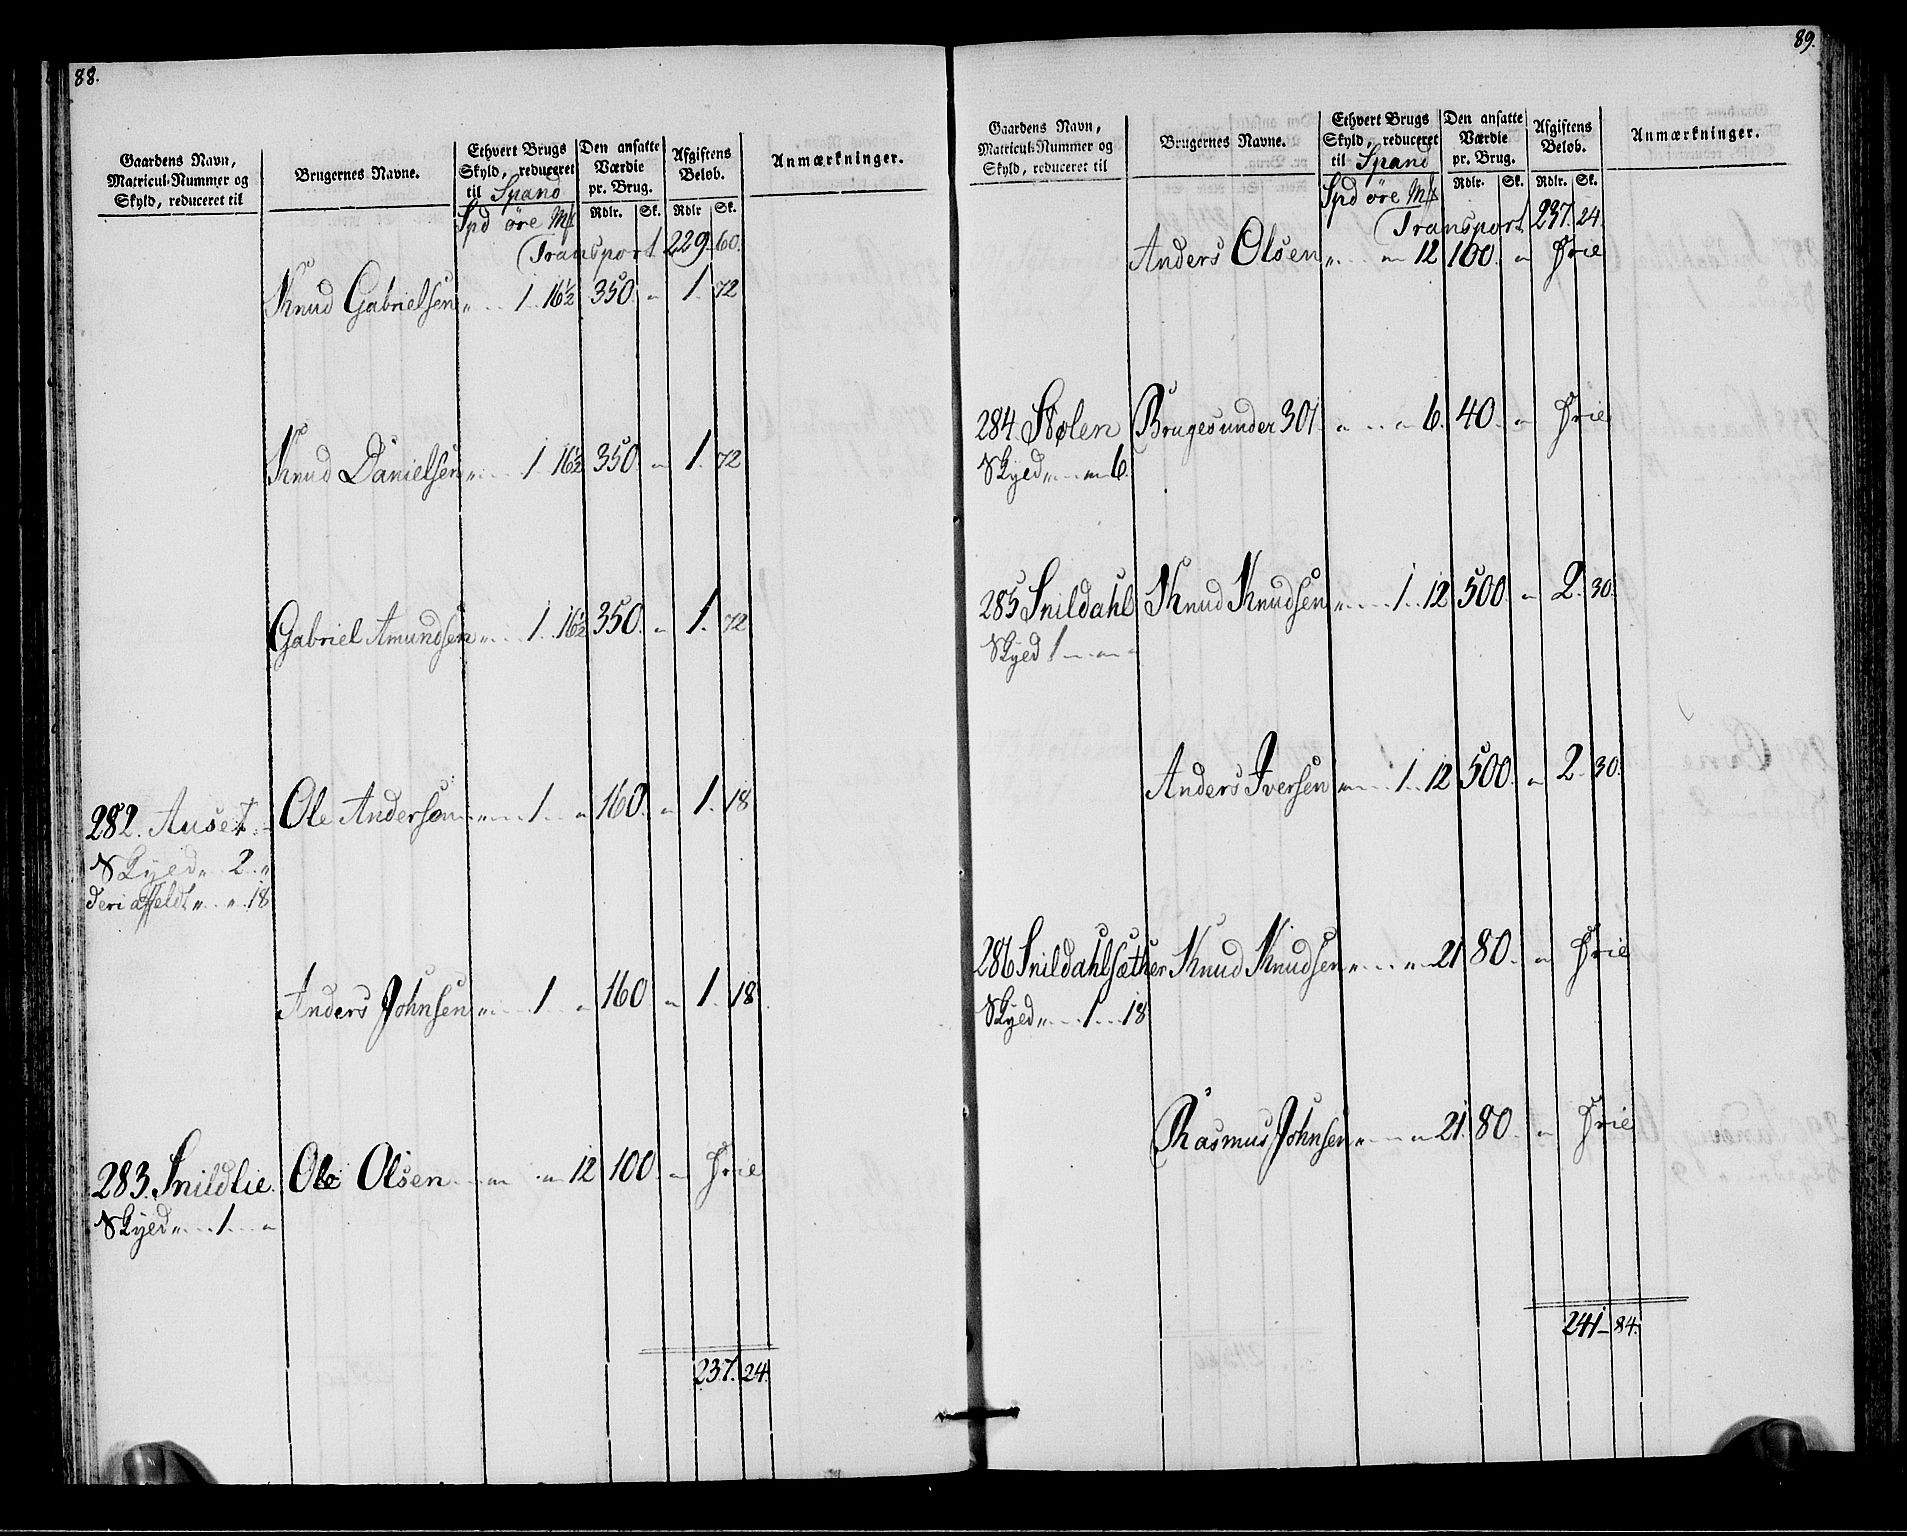 88.
Gaardens Navn, Matricul-Nummer og Skyld, reduceret til | Brugernes Navne. | Ethvert Brugs Skyld, reduceret til Spand | Den ansatte Værdie pr. Brug. | Afgiftens Beløb. | Anmærkninger.
Spd öre Mk | Rdlr. | Sk. | Rdlr | Sk.
Transport 229. 60.
Knud Gabrielsen „ 1. 16½ 350. „ 1. 72
Knud Danielsen „ 1. 16½ 350. „ 1. 72
Gabriel Amundsen „ 1. 16½ 350. „ 1. 72
282. Auset Ole Anderson „ 1. „ 160. „ 1. 18
Skyed „ 2. „
deri affeldt „ „ 18
Anders Johnsen „ 1 „ 160 „ 1. 18.
283. Snildlie. Ole Olsen „ „ 12 100. „ Frie
Skyed „ 1. „
237. 24.
89.
Gaardens Navn, Matricul-Nummer og Skyld, reduceret til | Brugernes Navne. | Ethvert Brugs Skyld, reduceret til Spand | Den ansatte Værdie pr. Brug. | Afgiftens Beløb. | Anmærkninger.
Spd öre Mk | Rdlr. | Sk. | Rdlr. | Sk.
Transport 237. 24.
Anders Olsen „ „ 12 100. „ Frie
284. Stølen Bruges under 301. „ „ 6. 40. „ Frie
Skyed „ „ 6.
285 Snildahl Knud Knudsen „ 1. 12 500 „ 2. 30.
Skyed 1 „ „
Anders Iversen „ 1. 12 500. „ 2. 30.
286 Snildahlsæther Knud Knudsen „ „ 21 80. „ Frie
Skyed „ 1. 18
Rasmus Johnsen „ „ 21. 80. „ Frie
241 84.